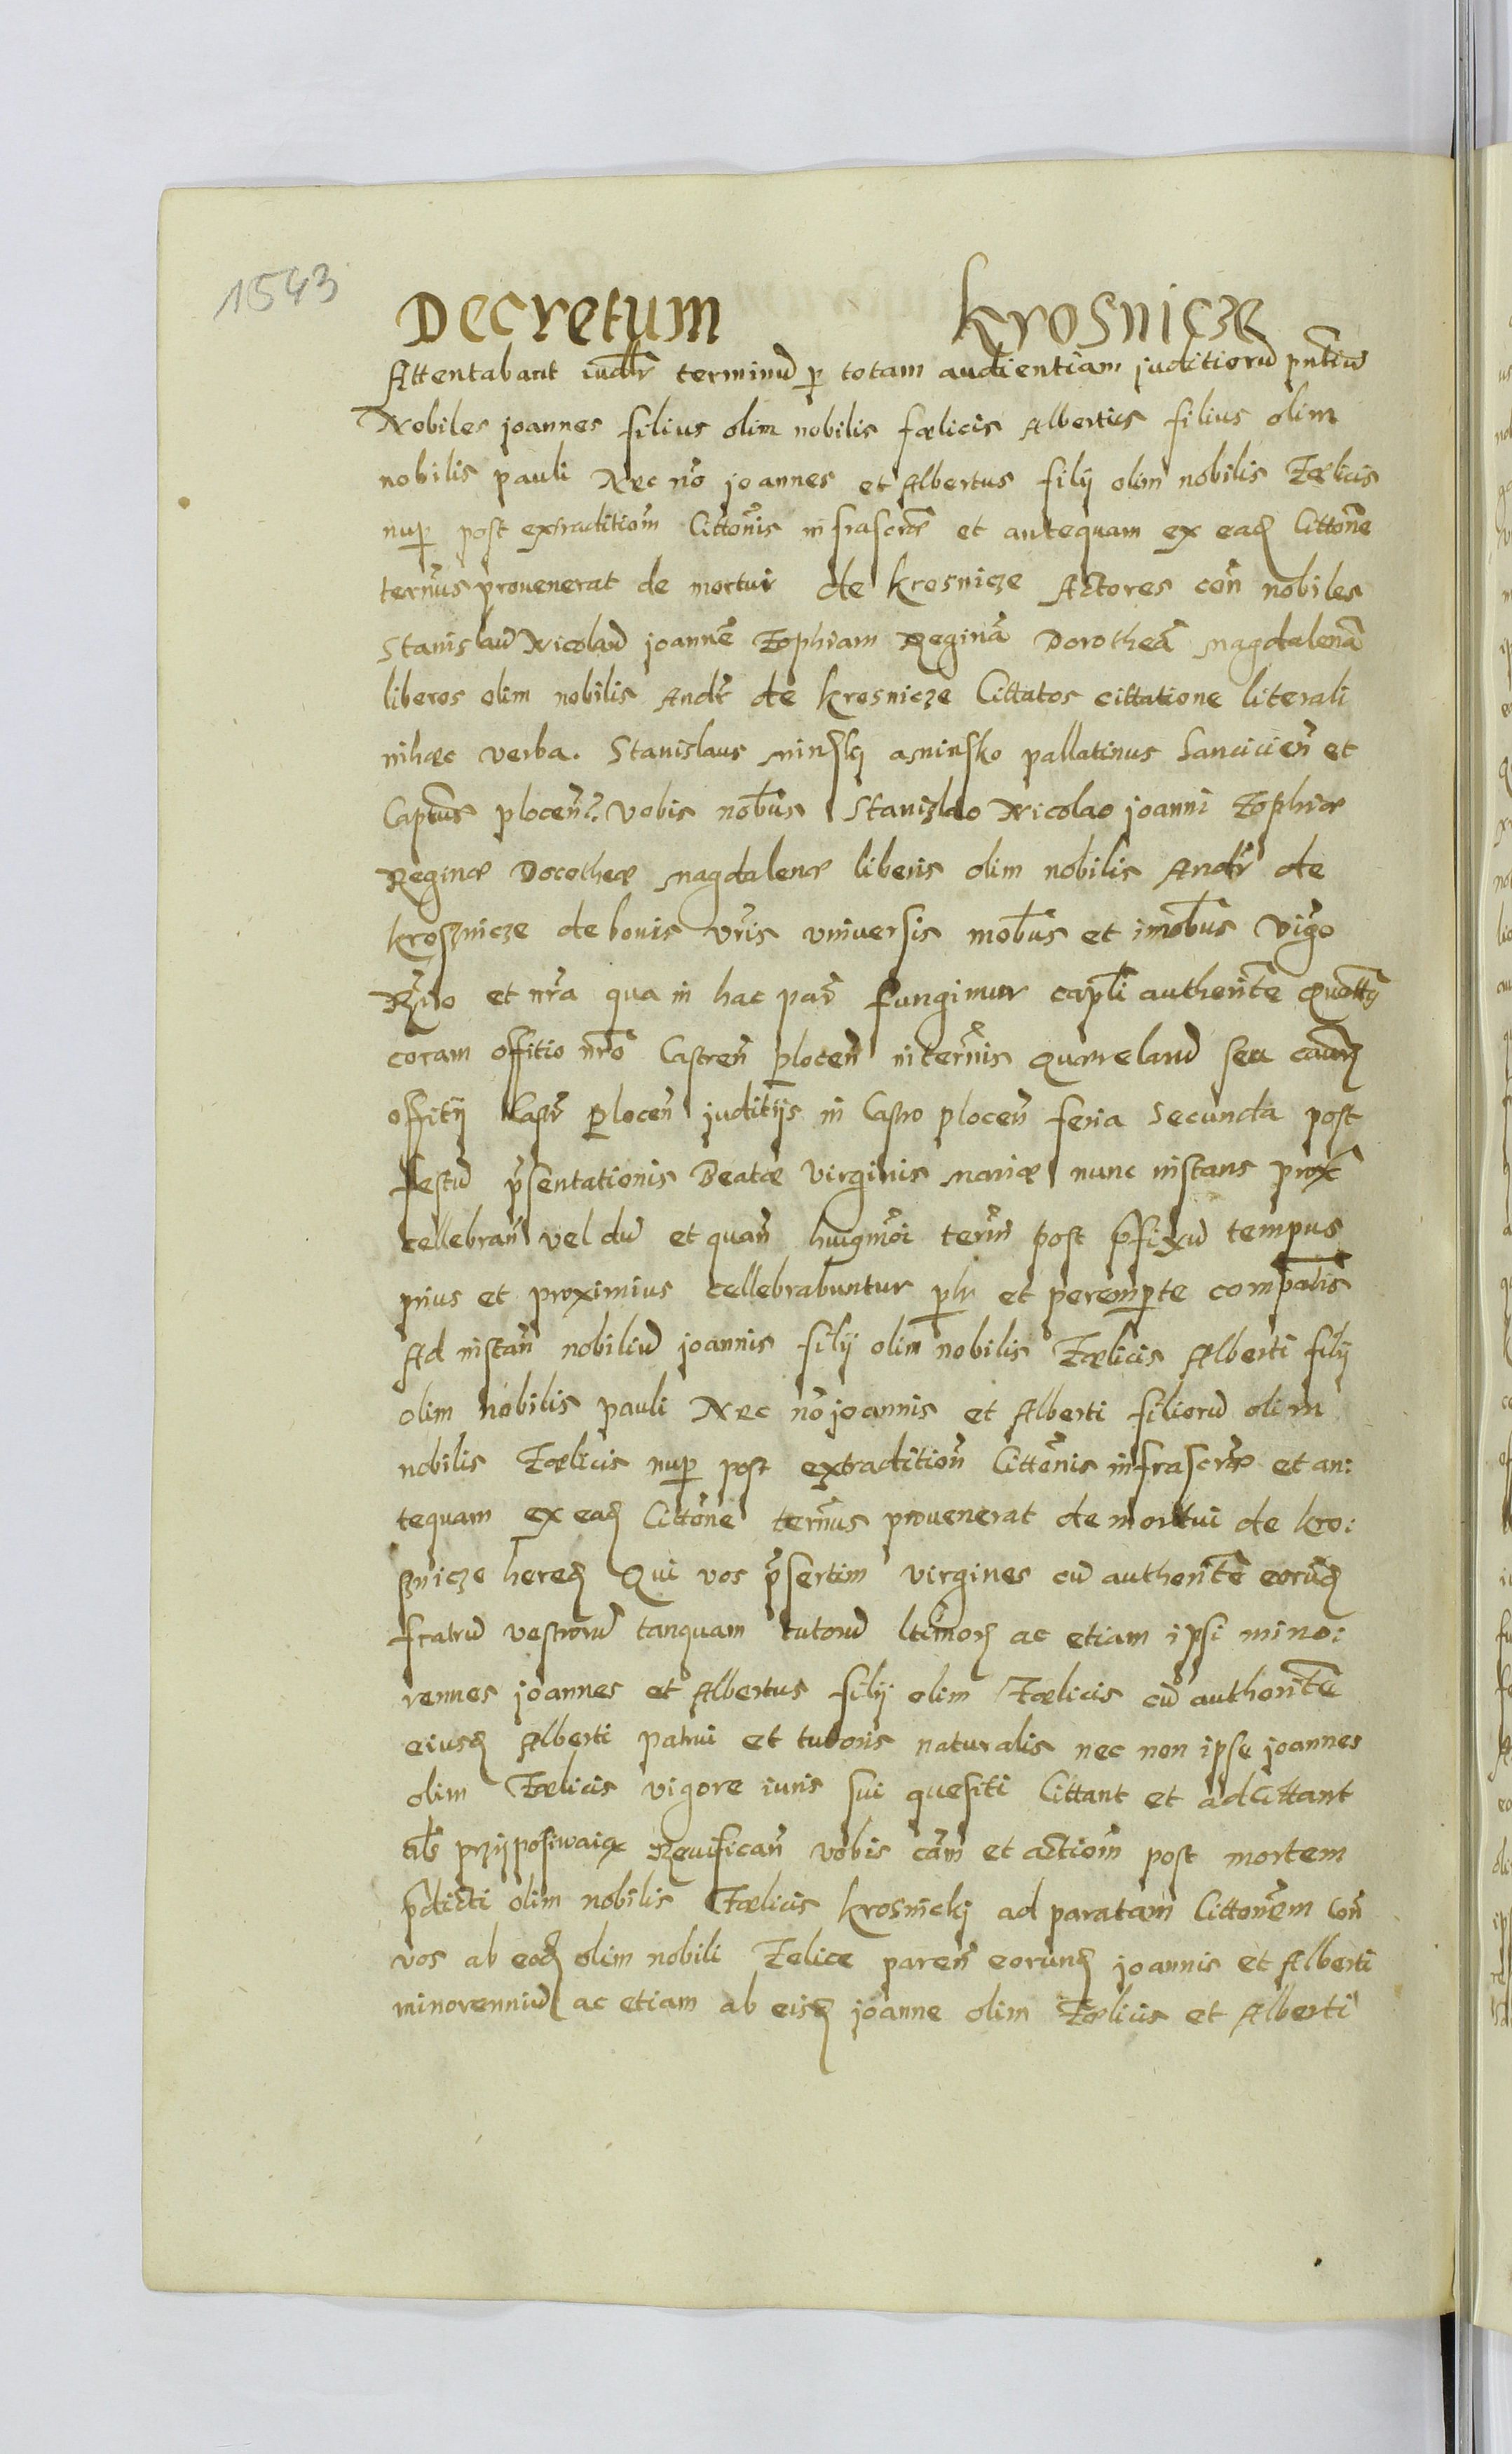 1543
Decretum Krosnicze
Attentabant iudlr terminū p totam audientiam juditiorū pntiū
Nobiles joannes filius olim nobilis fœlicis Albertus filius olim
nobilis pauli Nec nō joannes et Albertus filij olim nobilis Fœlicis
nup post extraditiom Cittonis infrascrᵉ et antequam ex eadȝ Cittone
termus provenerat de mortui de krosnicze Actores con nobiles
Stanislaū Nicolaū joannē Zophiam Reginā Dorotheā Magdalenā
liberos olim nobilis Andr de krosnicze Cittatos cittatione literali
in hæc verba. Stanislaus Minsky a Minsko pallatinus Lancicien et
Capteus plocen. Vobis nobus Stanislao Nicolao joanni Zophiæ
Reginæ Dorotheæ Magdalenæ liberis olim nobilis Andr de
krosznicze de bonis vris universis mobus et imobus Vigo
Rgio et nra qua in hac par fungimur capli authoritē
coram offitio nrō Castren plocen in termis Querelarū seu cauarȝ
offitij Castr plocen juditijs in Castro plocen feria Secunda post
festū psentationis Beatæ Virginis Mariæ nunc instans prox
cellebran vel dū et quan huigmoi term post pfixū tempus
prius et proximius cellebrabuntur plr et perempte compatis
Ad instan nobiliū joannis filij olim nobilis Fœlicis Alberti filij
olim nobilis pauli Nec nō joannis et Alberti filiorū olim
nobilis Fœlicis nup post extradition Cittonis infrascrᵉ et an:
tequam ex eadȝ Cittone termus provenerat de mortui de kro:
sznicze heredȝ Qui vos psertim virgines cū authoritē eorūdȝ
fratrū vestrorū tanquam tutorū ltimorȝ ac etiam ipsi mino:
rennes joannes et Albertus filij olim Fœlicis cū authoritē
eiusdȝ Alberti patrui et tutoris naturalis nec non ipse joannes
olim Fœlicis vigore iuris sui quesiti Cittant et adcittant
als przyposiwaiąx Revifican vobis cam et actiom post mortem
pdicti olim nobilis Fœlicis krosnicki ad paratam Cittonem Con
vos ab eodȝ olim nobili Felice paren eorundȝ joannis et Alberti
minorenniū ac etiam ab eisdȝ joanne olim Fœlicis et Alberti